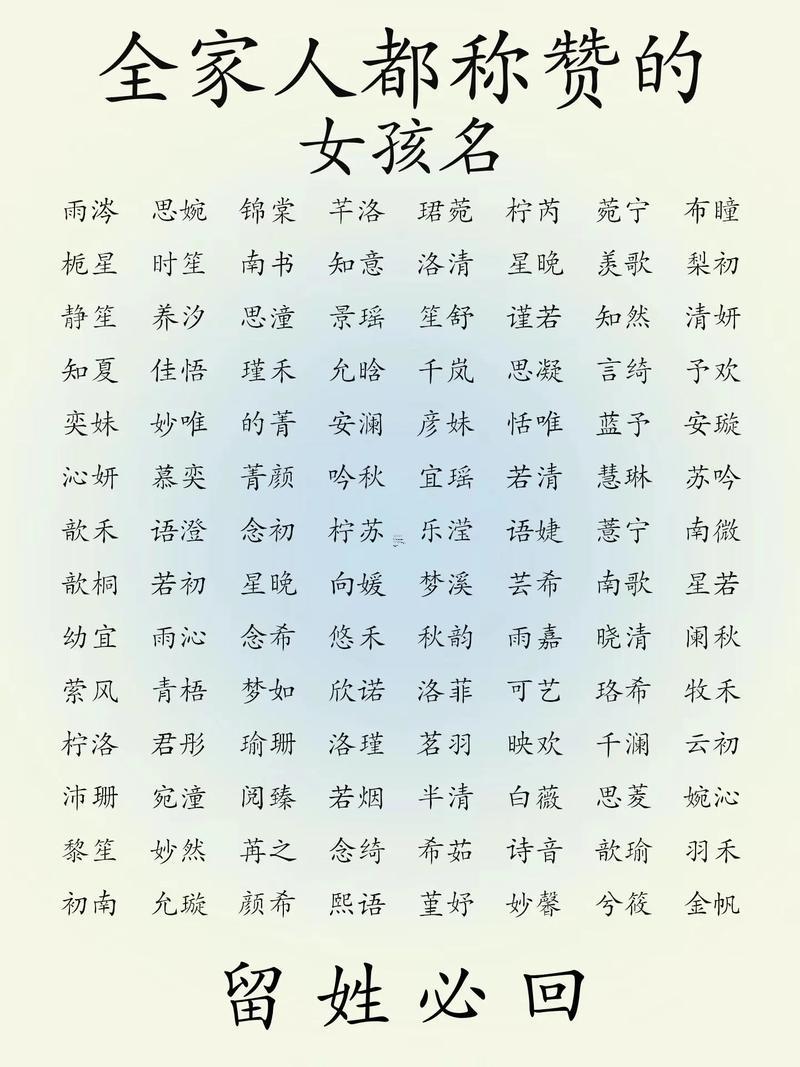 全家人都称赞的
女孩名
雨涔 思婉 锦棠 芊洛 珺菀 柠芮 菀宁 布瞳
栀星 时笙 南书 知意 洛清 星晚 羡歌 梨初
静笙 养汐 思潼 景瑶 笙舒 谨若 知然 清妍
知夏 佳悟 瑾禾 允晗 千岚 思凝 言绮 予欢
奕妹 妙唯 的菁 安澜 彦妹 恬唯 蓝予 安璇
沁妍 慕奕 菁颜 吟秋 宜瑶 若清 慧琳 苏吟
歆禾 语澄 念初 柠苏 乐滢 语婕 薏宁 南微
歆桐 若初 星晚 向媛 梦溪 芸希 南歌 星若
幼宜 雨沁 念希 悠禾 秋韵 雨嘉 晓清 阑秋
萦风 青梧 梦如 欣诺 洛菲 可艺 珞希 牧禾
柠洛 君彤 瑜珊 洛瑾 茗羽 映欢 千澜 云初
沛珊 宛潼 阅臻 若烟 半清 白薇 思菱 婉沁
黎笙 妙然 苒之 念绮 希茹 诗音 歆瑜 羽禾
初南 允璇 颜希 熙语 堇妤 妙馨 兮筱 金帆
留姓必回